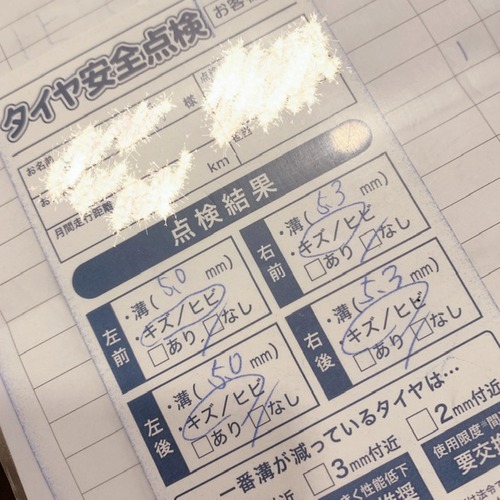 お客
タイヤ安全点検
点
お名前
様
お
km
月間走行距離
点検結果
左前
・溝(5.0 mm)
・キズ/ヒビ
□あり ☑なし
右前
・溝(5.3 mm)
・キズ/ヒビ
□あり ☑なし
左後
・溝(5.0 mm)
・キズ/ヒビ
□あり ☑なし
右後
・溝(5.3 mm)
・キズ/ヒビ
□あり ☑なし
番溝が減っているタイヤは…
□3mm付近
□2mm付近
く性能低下
使用限度
要交換